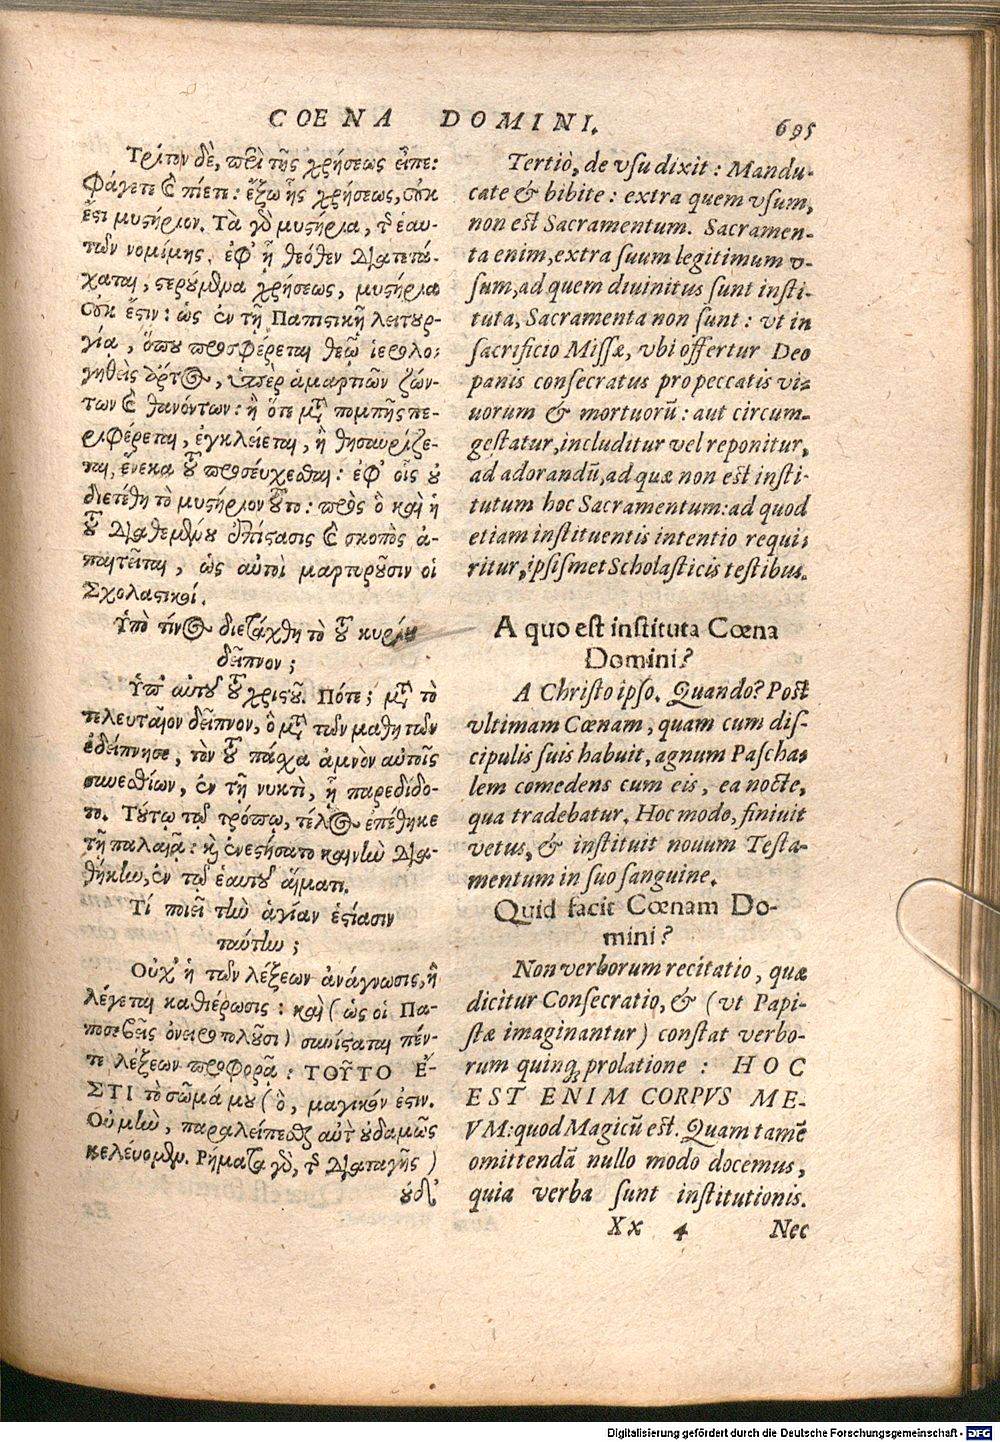 COENA DOMINI.
695
Τρίτον δὲ, περὶ τῆς χρήσεως εἶπε:
Φάγετε καὶ πίετε: ἔξω ἧς χρήσεως, οὐκ
ἔςι μυςήριον. Τὰ γὸ μυςήρια, τ͂ ἑαυ-
τῶν νομίμης, ἐφ' ᾗ θεόθεν διατετά-
χαται, ςερούμενα χρήσεως, μυςήρια
οὐκ ἔςιν: ὡς ἐν τῇ Παπιςικῇ λειτουρ-
γίᾳ, ὅπου προσφέρεται θεῷ ἱερολο-
γηθεὶς ἄρτος, ὑπὲρ ἁμαρτιῶν ζών-
των καὶ θανόντων: ἢ ὅτε μετὰ πομπῆς πε-
ριφέρεται, ἐγκλείεται, ἢ θησαυρίζε-
ται, ἕνεκα τοῦ προσεύχεσθαι: ἐφ' οἷς οὐ
διετέθη τὸ μυςήριον τοῦτο: πρὸς ὃ καὶ ἡ
τοῦ διαθεμένου ἐπίτασις καὶ σκοπὸς ἀ-
παιτεῖται, ὡς αὐτοὶ μαρτυροῦσιν οἱ
Σχολαςικοί.
Ὑπὸ τίνος διετάχθη τὸ τοῦ κυρίου
δεῖπνον;
Ὑπ' αὐτοῦ τοῦ χριςοῦ. Πότε; μετὰ τὸ
τελευταῖον δεῖπνον, ὃ μετὰ τῶν μαθητῶν
ἐδείπνησε, τὸν τοῦ πάσχα ἀμνὸν αὐτοῖς
συνεσθίων, ἐν τῇ νυκτὶ, ᾗ παρεδίδο-
το. Τούτῳ τῷ τρόπῳ, τέλος ἐπέθηκε
τῇ παλαιᾷ: καὶ ἐνεςήσατο καινὴν δια-
θήκην, ἐν τῷ ἑαυτοῦ αἵματι.
Τί ποιεῖ τὴν ἁγίαν ἑςίασιν
ταύτην;
Οὐχ' ἡ τῶν λέξεων ἀνάγνωσις, ἣ
λέγεται καθιέρωσις: καὶ (ὡς οἱ Πα-
ποσεβεῖς ὀνειροπολοῦσι) συνίςαται πέν-
τε λέξεων προφορᾷ: ΤΟΥ͂ΤΟ Ἐ-
ΣΤΙ τὸ σῶμά μου (ὃ, μαγικόν ἐςιν.
Οὐ μὴν, παραλείπεσθαι αὐτὰ οὐδαμῶς
κελεύομεν. Ρήματα γὸ, τ͂ διαταγῆς)
οὐδ'
Tertiò, de vsu dixit: Mandu-
cate & bibite: extra quem vsum,
non est Sacramentum. Sacramen-
ta enim, extra suum legitimum v-
sum, ad quem diuinitus sunt insti-
tuta, Sacramenta non sunt: vt in
sacrificio Missæ, vbi offertur Deo
panis consecratus pro peccatis vi-
uorum & mortuorũ: aut circum-
gestatur, includitur vel reponitur,
ad adorandũ, ad quæ non est insti-
tutum hoc Sacramentum: ad quod
etiam instituentis intentio requi-
ritur, ipsismet Scholasticis testibus.
A quo est instituta Cœna
Domini?
A Christo ipso. Quando? Post
vltimam Cœnam, quam cum dis-
cipulis suis habuit, agnum Pascha-
lem comedens cum eis, ea nocte,
qua tradebatur. Hoc modo, finiuit
vetus, & instituit nouum Testa-
mentum in suo sanguine.
Quid facit Cœnam Do-
mini?
Non verborum recitatio, quæ
dicitur Consecratio, & (vt Papi-
stæ imaginantur) constat verbo-
rum quinq; prolatione: HOC
EST ENIM CORPVS ME-
VM: quod Magicũ est. Quam tamẽ
omittendã nullo modo docemus,
quia verba sunt institutionis.
Xx 4 Nec
Digitalisierung gefördert durch die Deutsche Forschungsgemeinschaft - DFG